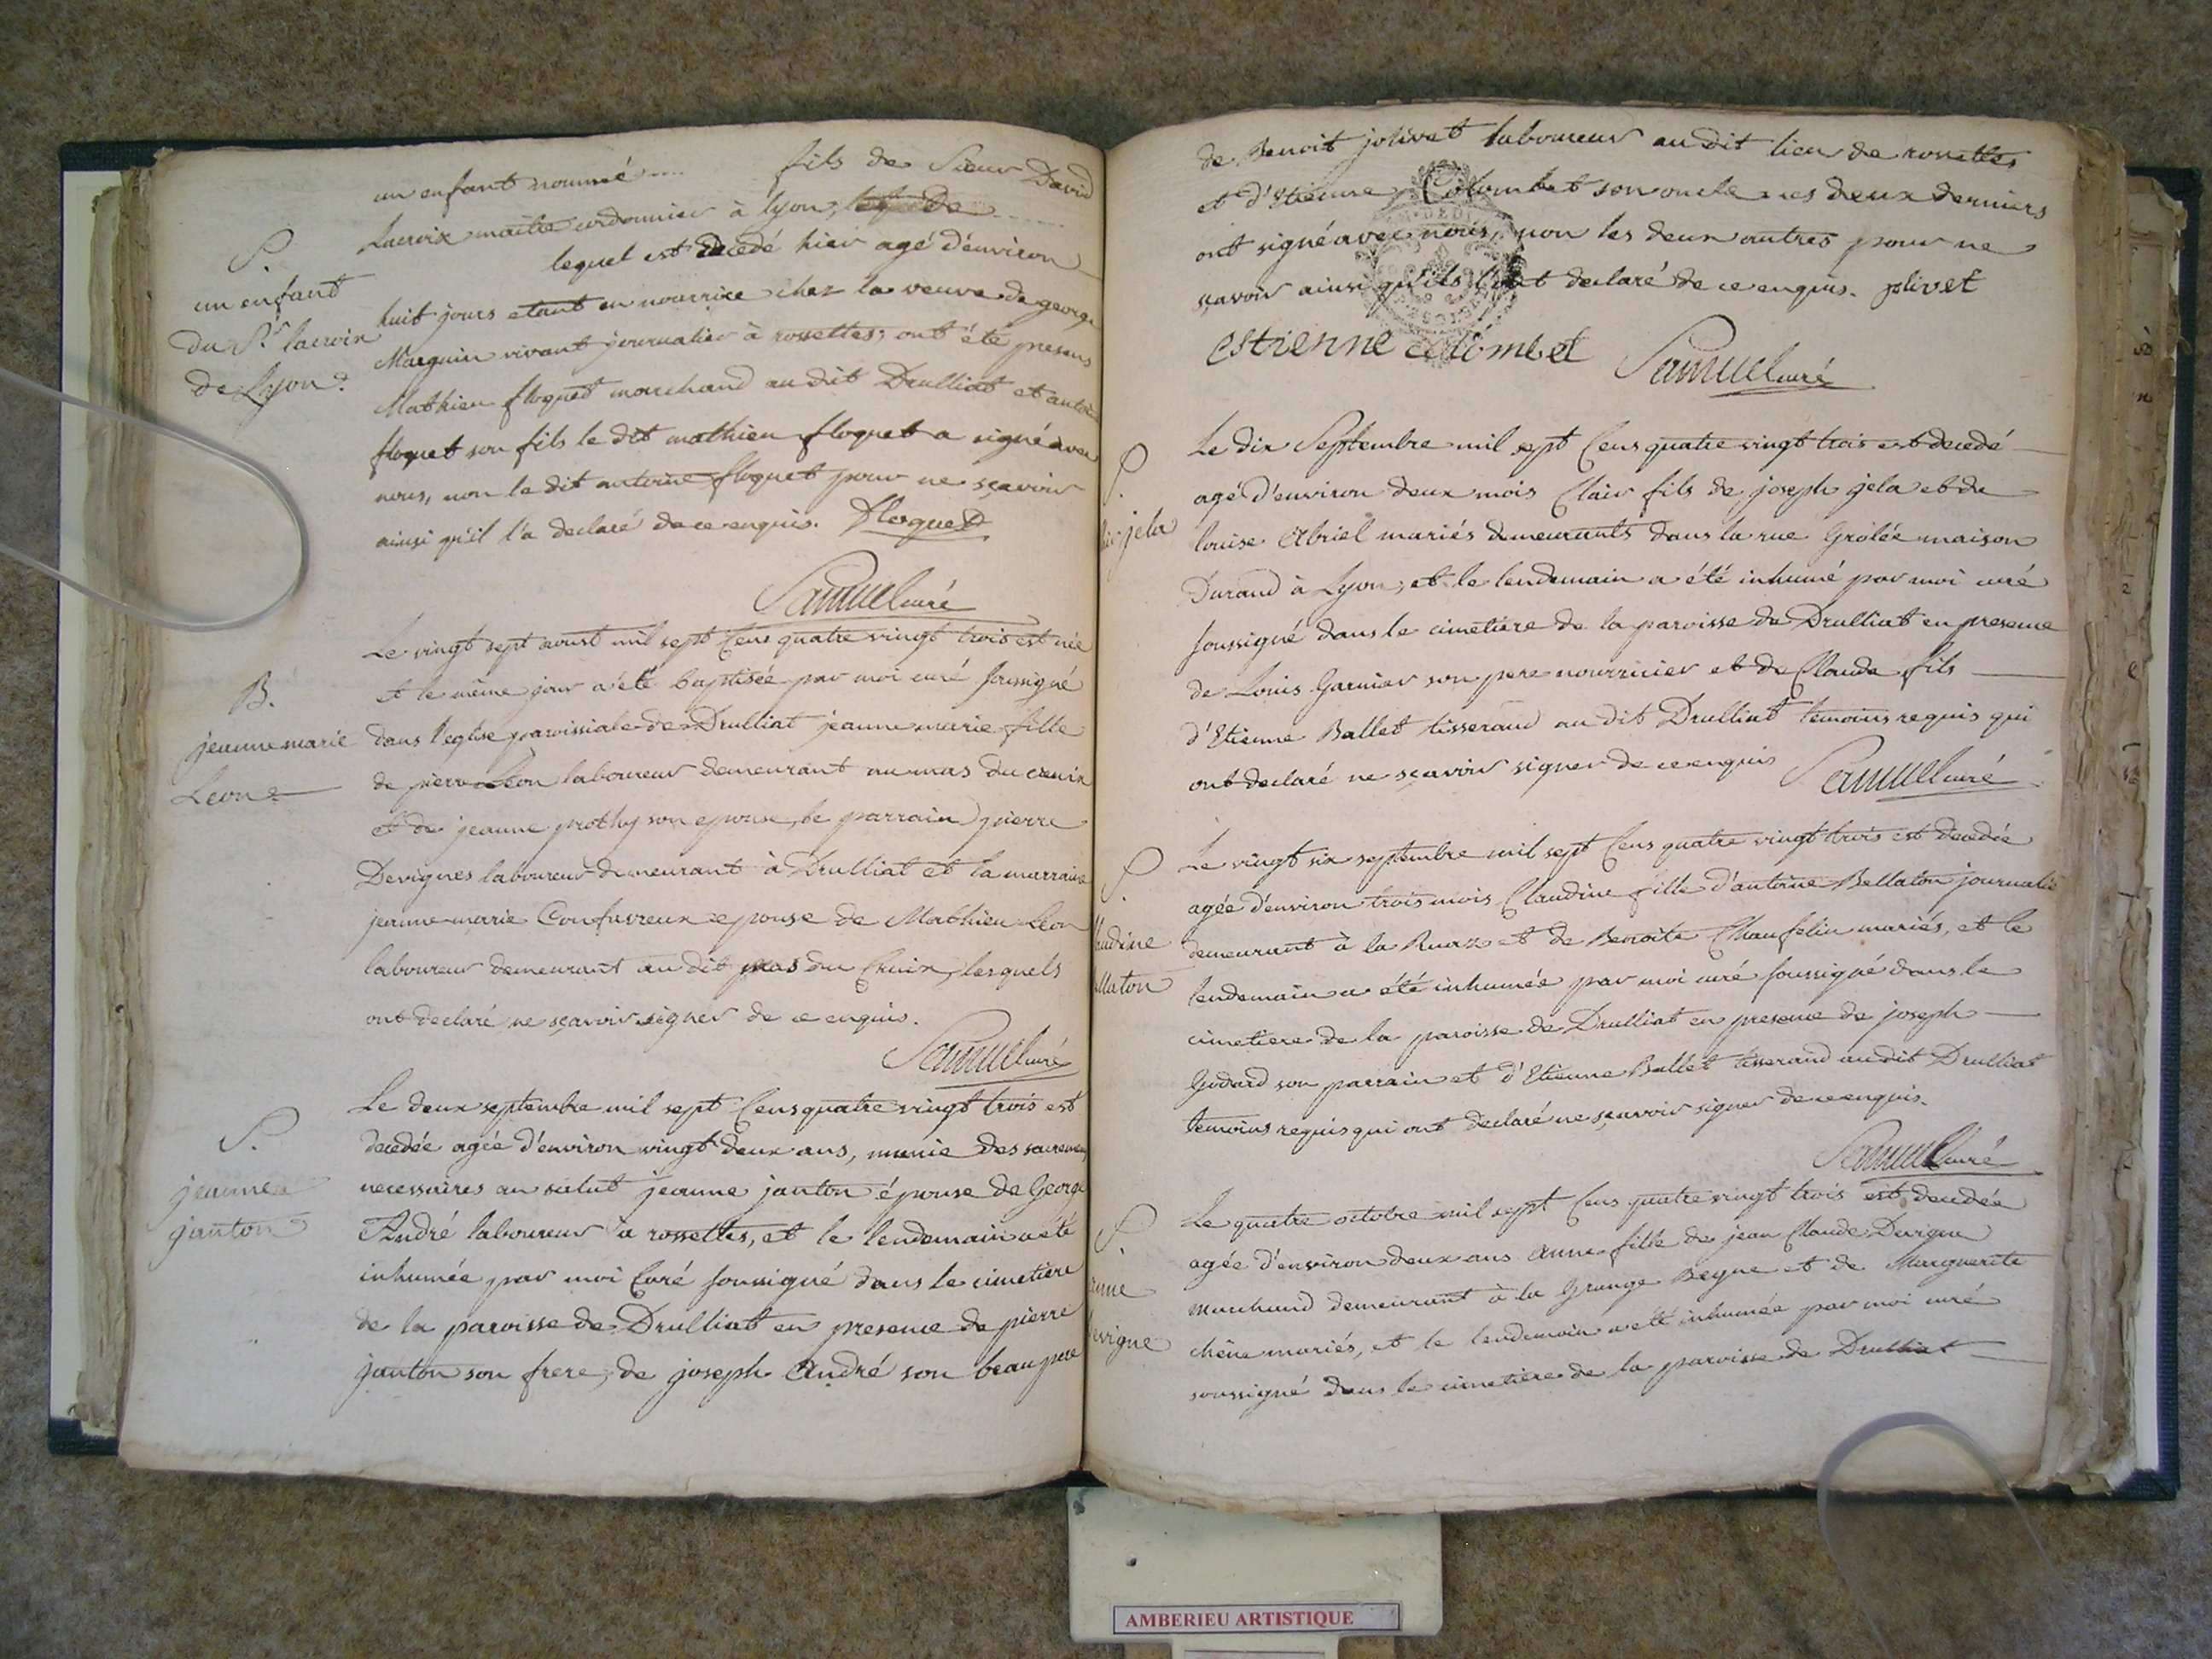 un enfant nommé .... fils de Sieur David
Lacroix maitre cordonnier à lyon,
lequel est decedé hier agé d'environ
S.
un enfant
du Sr. lacroix
de Lyon.
huit jours etant en nourrice chez la veuve de george
Marguin vivant journalier à rossettes; ont été presens
Mathieu floquet marchand au dit Drulliat et antoine
floquet son fils le dit mathieu floquet a signé avec
nous, non le dit antoine floquet pour ne sçavoir
ainsi qu'il l'a declaré de ce enquis. floquet
Samuel curé
B.
jeanne marie
Leon
Le vingt sept aoust mil sept Cens quatre vingt trois est née
et le même jour a été baptisée par moi curé soussigné
dans l'eglise paroissiale de Drulliat jeanne marie fille
de pierre Leon laboureur demeurant au mas du cruix
et de jeanne prothy son epouse, le parrain pierre
Devignes laboureur demeurant à Drulliat et la marraine
jeanne marie Confavreux epouse de Mathieu Leon
laboureur demeurant au dit mas du Cruix, lesquels
ont declaré ne sçavoir signer de ce enquis.
Samuel curé
S.
jeanne
janton
Le deux septembre mil sept Cens quatre vingt trois est
decedée agée d'environ vingt deux ans, munie des sacremens
necessaires au salut jeanne janton épouse de George
André laboureur à rossettes, et le lendemain a été
inhumée par moi Curé soussigné dans le cimetiere
de la paroisse de Drulliat en presence de pierre
janton son frere, de joseph André son beau pere
de Benoit jolivet laboureur au dit lieu de rossettes
et d'Etienne Colombet son oncle les deux derniers
ont signé avec nous, non les deux autres pour ne
sçavoir ainsi qu'ils l'ont declaré de ce enquis. jolivet
estienne colombet Samuel curé
S.
jela
Le dix Septembre mil sept Cens quatre vingt trois est decedé
agé d'environ deux mois Clair fils de joseph jela et de
louise Abriel mariés demeurants dans la rue Grolée maison
Durand à Lyon, et le lendemain a été inhumé par moi curé
soussigné dans le cimetiere de la paroisse de Drulliat en presence
de Louis Garnier son pere nourricier et de Claude fils
d'Etienne Ballet tisserand au dit Drulliat temoins requis qui
ont declaré ne sçavoir signer de ce enquis Samuel curé
S.
audine
llaton
Le vingt six septembre mil sept Cens quatre vingt trois est decedée
agée d'environ trois mois Claudine fille d'antoine Bellaton journalie
demeurant à la Ruaz et de Benoite Chanfelin mariés, et le
lendemain a été inhumée par moi curé soussigné dans le
cimetiere de la paroisse de Drulliat en presence de joseph
Godard son parrain et d'Etienne Ballet tisserand au dit Drulliat
temoins requis qui ont declaré ne sçavoir signer de ce enquis.
Samuel curé
S.
anne
devigne
Le quatre octobre mil sept Cens quatre vingt trois est decedée
agée d'environ deux ans Anne fille de jean Claude Devigne
marchand demeurant à la Grange Beyne et de Marguerite
chêne mariés, et le lendemain a été inhumée par moi curé
soussigné dans le cimetiere de la paroisse de Drulliat
AMBERIEU ARTISTIQUE